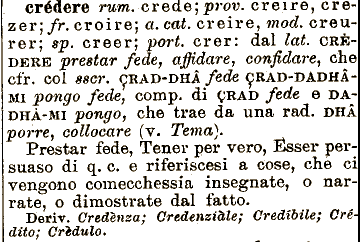 crédere rum. crede; prov. creire, cre-
zer; fr. croire; a. cat. creire, mod. creu-
rer; sp. creer; port. crer: dal lat. CRÈ-
DERE prestar fede, affidare, confidare, che
cfr. col sscr. ÇRAD-DHÂ fede ÇRAD-DADHÂ-
MI pongo fede, comp. di ÇRAD fede e DA-
DHÂ-MI pongo, che trae da una rad. DHÂ
porre, collocare (v. Tema).
Prestar fede, Tener per vero, Esser per-
suaso di q. c. e riferiscesi a cose, che ci
vengono comecchessia insegnate, o nar-
rate, o dimostrate dal fatto.
Deriv. Credènza; Credenziàle; Credìbile; Cré-
dito; Crèdulo.